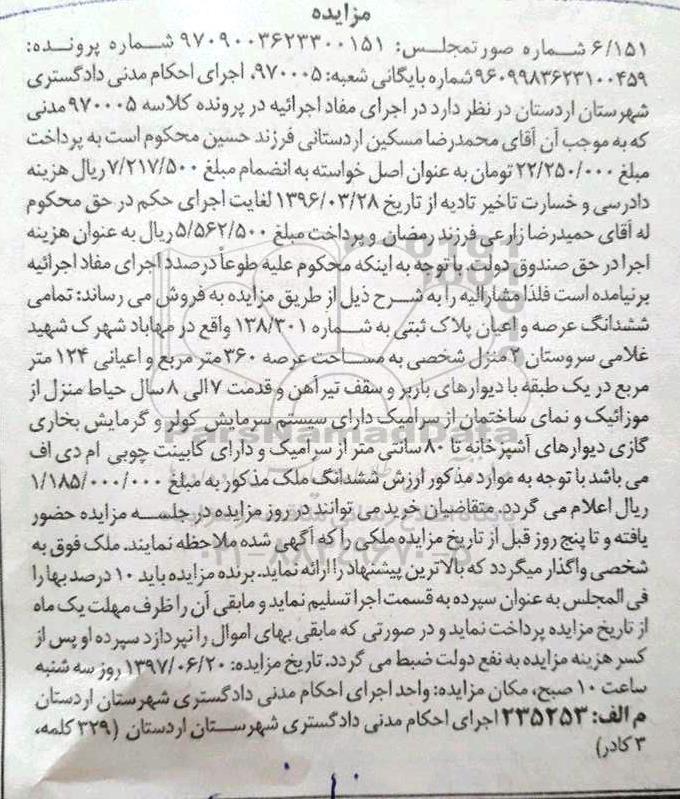 مزایده
۶/۱۵۱ شماره صورتمجلس: ۹۷۰۹۰۰۳۶۲۳۳۰۰۱۵۱ شماره پرونده:
۹۶۰۹۹۸۳۶۲۳۱۰۰۴۵۹ شماره بایگانی شعبه: ۹۷۰۰۰۵، اجرای احکام مدنی دادگستری
شهرستان اردستان در نظر دارد در اجرای مفاد اجرائیه در پرونده کلاسه ۹۷۰۰۰۵ مدنی
که به موجب آن آقای محمدرضا مسکین اردستانی فرزند حسین محکوم است به پرداخت
مبلغ ۲۲/۲۵۰/۰۰۰ تومان به عنوان اصل خواسته به انضمام مبلغ ۷/۲۱۷/۵۰۰ ریال هزینه
دادرسی و خسارت تاخیر تادیه از تاریخ ۱۳۹۶/۰۳/۲۸ لغایت اجرای حکم در حق محکوم
له آقای حمیدرضا زارعی فرزند رمضان و پرداخت مبلغ ۵/۵۶۲/۵۰۰ ریال به عنوان هزینه
اجرا در حق صندوق دولت. با توجه به اینکه محکوم علیه طوعاً درصدد اجرای مفاد اجرائیه
برنیامده است فلذا مشارالیه را به شرح ذیل از طریق مزایده به فروش می رساند: تمامی
ششدانگ عرصه و اعیان پلاک ثبتی به شماره ۱۳۸/۳۰۱ واقع در مهاباد شهرک شهید
غلامی سروستان ۲ منزل شخصی به مساحت عرصه ۳۶۰ متر مربع و اعیانی ۱۲۴ متر
مربع در یک طبقه با دیوارهای باربر و سقف تیرآهن و قدمت ۷ الی ۸ سال حیاط منزل از
موزائیک و نمای ساختمان از سرامیک دارای سیستم سرمایش کولر و گرمایش بخاری
گازی دیوارهای آشپزخانه تا ۸۰ سانتی متر از سرامیک و دارای کابینت چوبی ام دی اف
می باشد با توجه به موارد مذکور ارزش ششدانگ ملک مذکور به مبلغ ۱/۱۸۵/۰۰۰/۰۰۰
ریال اعلام می گردد. متقاضیان خرید می توانند در روز مزایده در جلسه مزایده حضور
یافته و تا پنج روز قبل از تاریخ مزایده ملکی را که آگهی شده ملاحظه نمایند. ملک فوق به
شخصی واگذار میگردد که بالاترین پیشنهاد را ارائه نماید. برنده مزایده باید ۱۰ درصد بها را
فی المجلس به عنوان سپرده به قسمت اجرا تسلیم نماید و مابقی آن را ظرف مهلت یک ماه
از تاریخ مزایده پرداخت نماید و در صورتی که مابقی بهای اموال را نپردازد سپرده او پس از
کسر هزینه مزایده به نفع دولت ضبط می گردد. تاریخ مزایده: ۱۳۹۷/۰۶/۲۰ روز سه شنبه
ساعت ۱۰ صبح، مکان مزایده: واحد اجرای احکام مدنی دادگستری شهرستان اردستان
م الف: ۲۳۵۲۵۳ اجرای احکام مدنی دادگستری شهرستان اردستان (۳۲۹ کلمه،
۳ کادر)
ParsNamadData